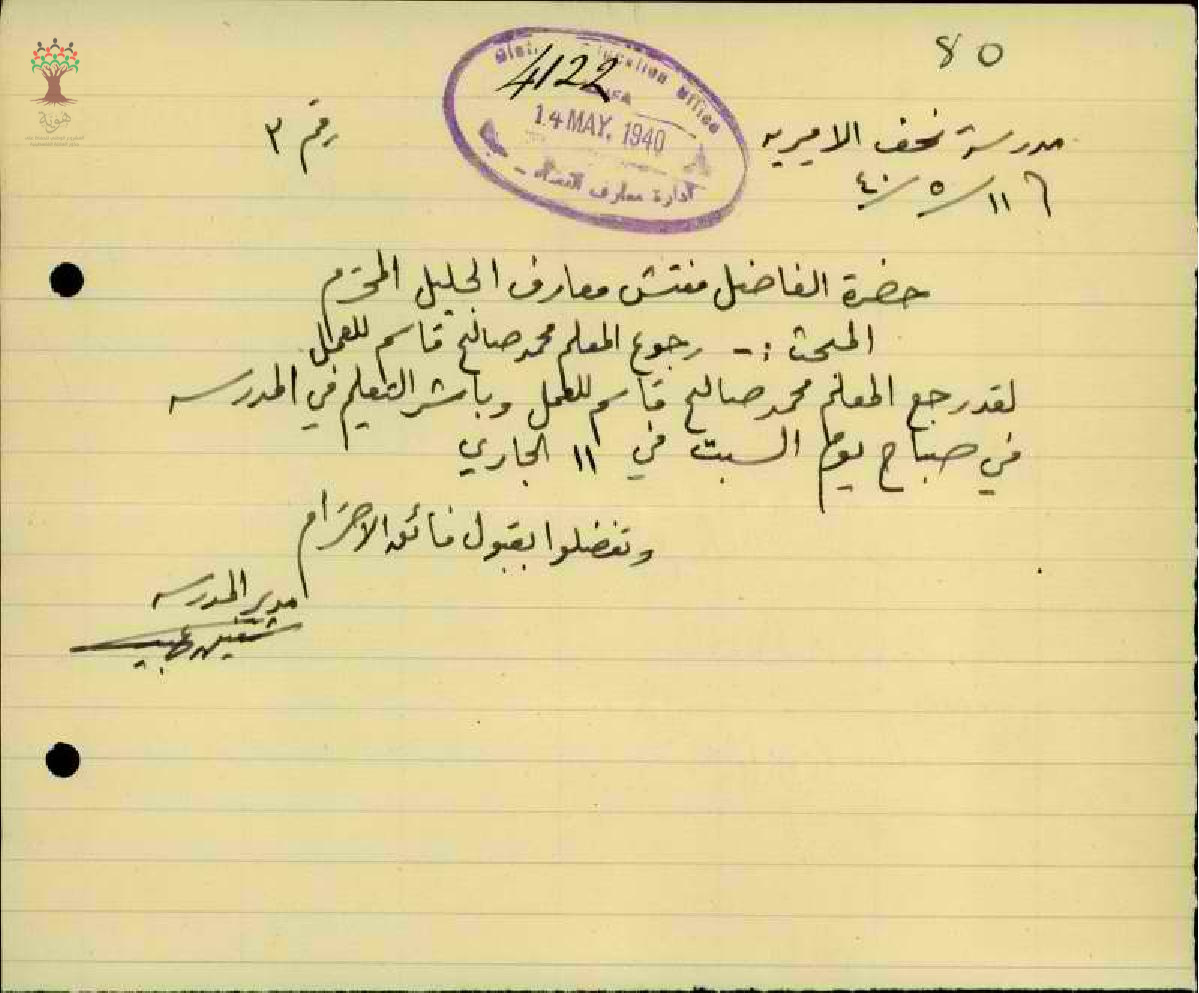 80
4122
District Education Office
14 MAY. 1940
ادارة معارف القضاء - حيفا
مدرسة نحف الاميريه
رقم ٣
١١ / ٥ / ٤٠
حضرة الفاضل مفتش معارف الجليل المحترم
المبحث :- رجوع المعلم محمد صالح قاسم للعمل
لقد رجع المعلم محمد صالح قاسم للعمل وباشر التعليم في المدرسه
في صباح يوم السبت في ١١ الجاري
وتفضلوا بقبول فائق الاحترام
مدير المدرسه
هوية